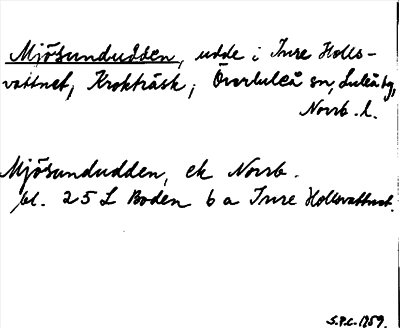 Mjösundudden, udde i Inre Holls-
vattnet, Krokträsk, Överluleå sn, Luleå bg,
Norrb. l.
Mjösundudden, ek Norrb.
bl. 25 L Boden 6 a Inre Hollsvattnet.
S.P.C. 1959.